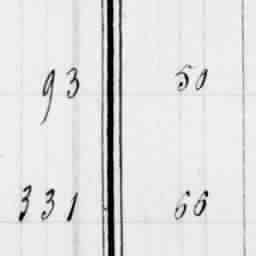 93 50
331 66